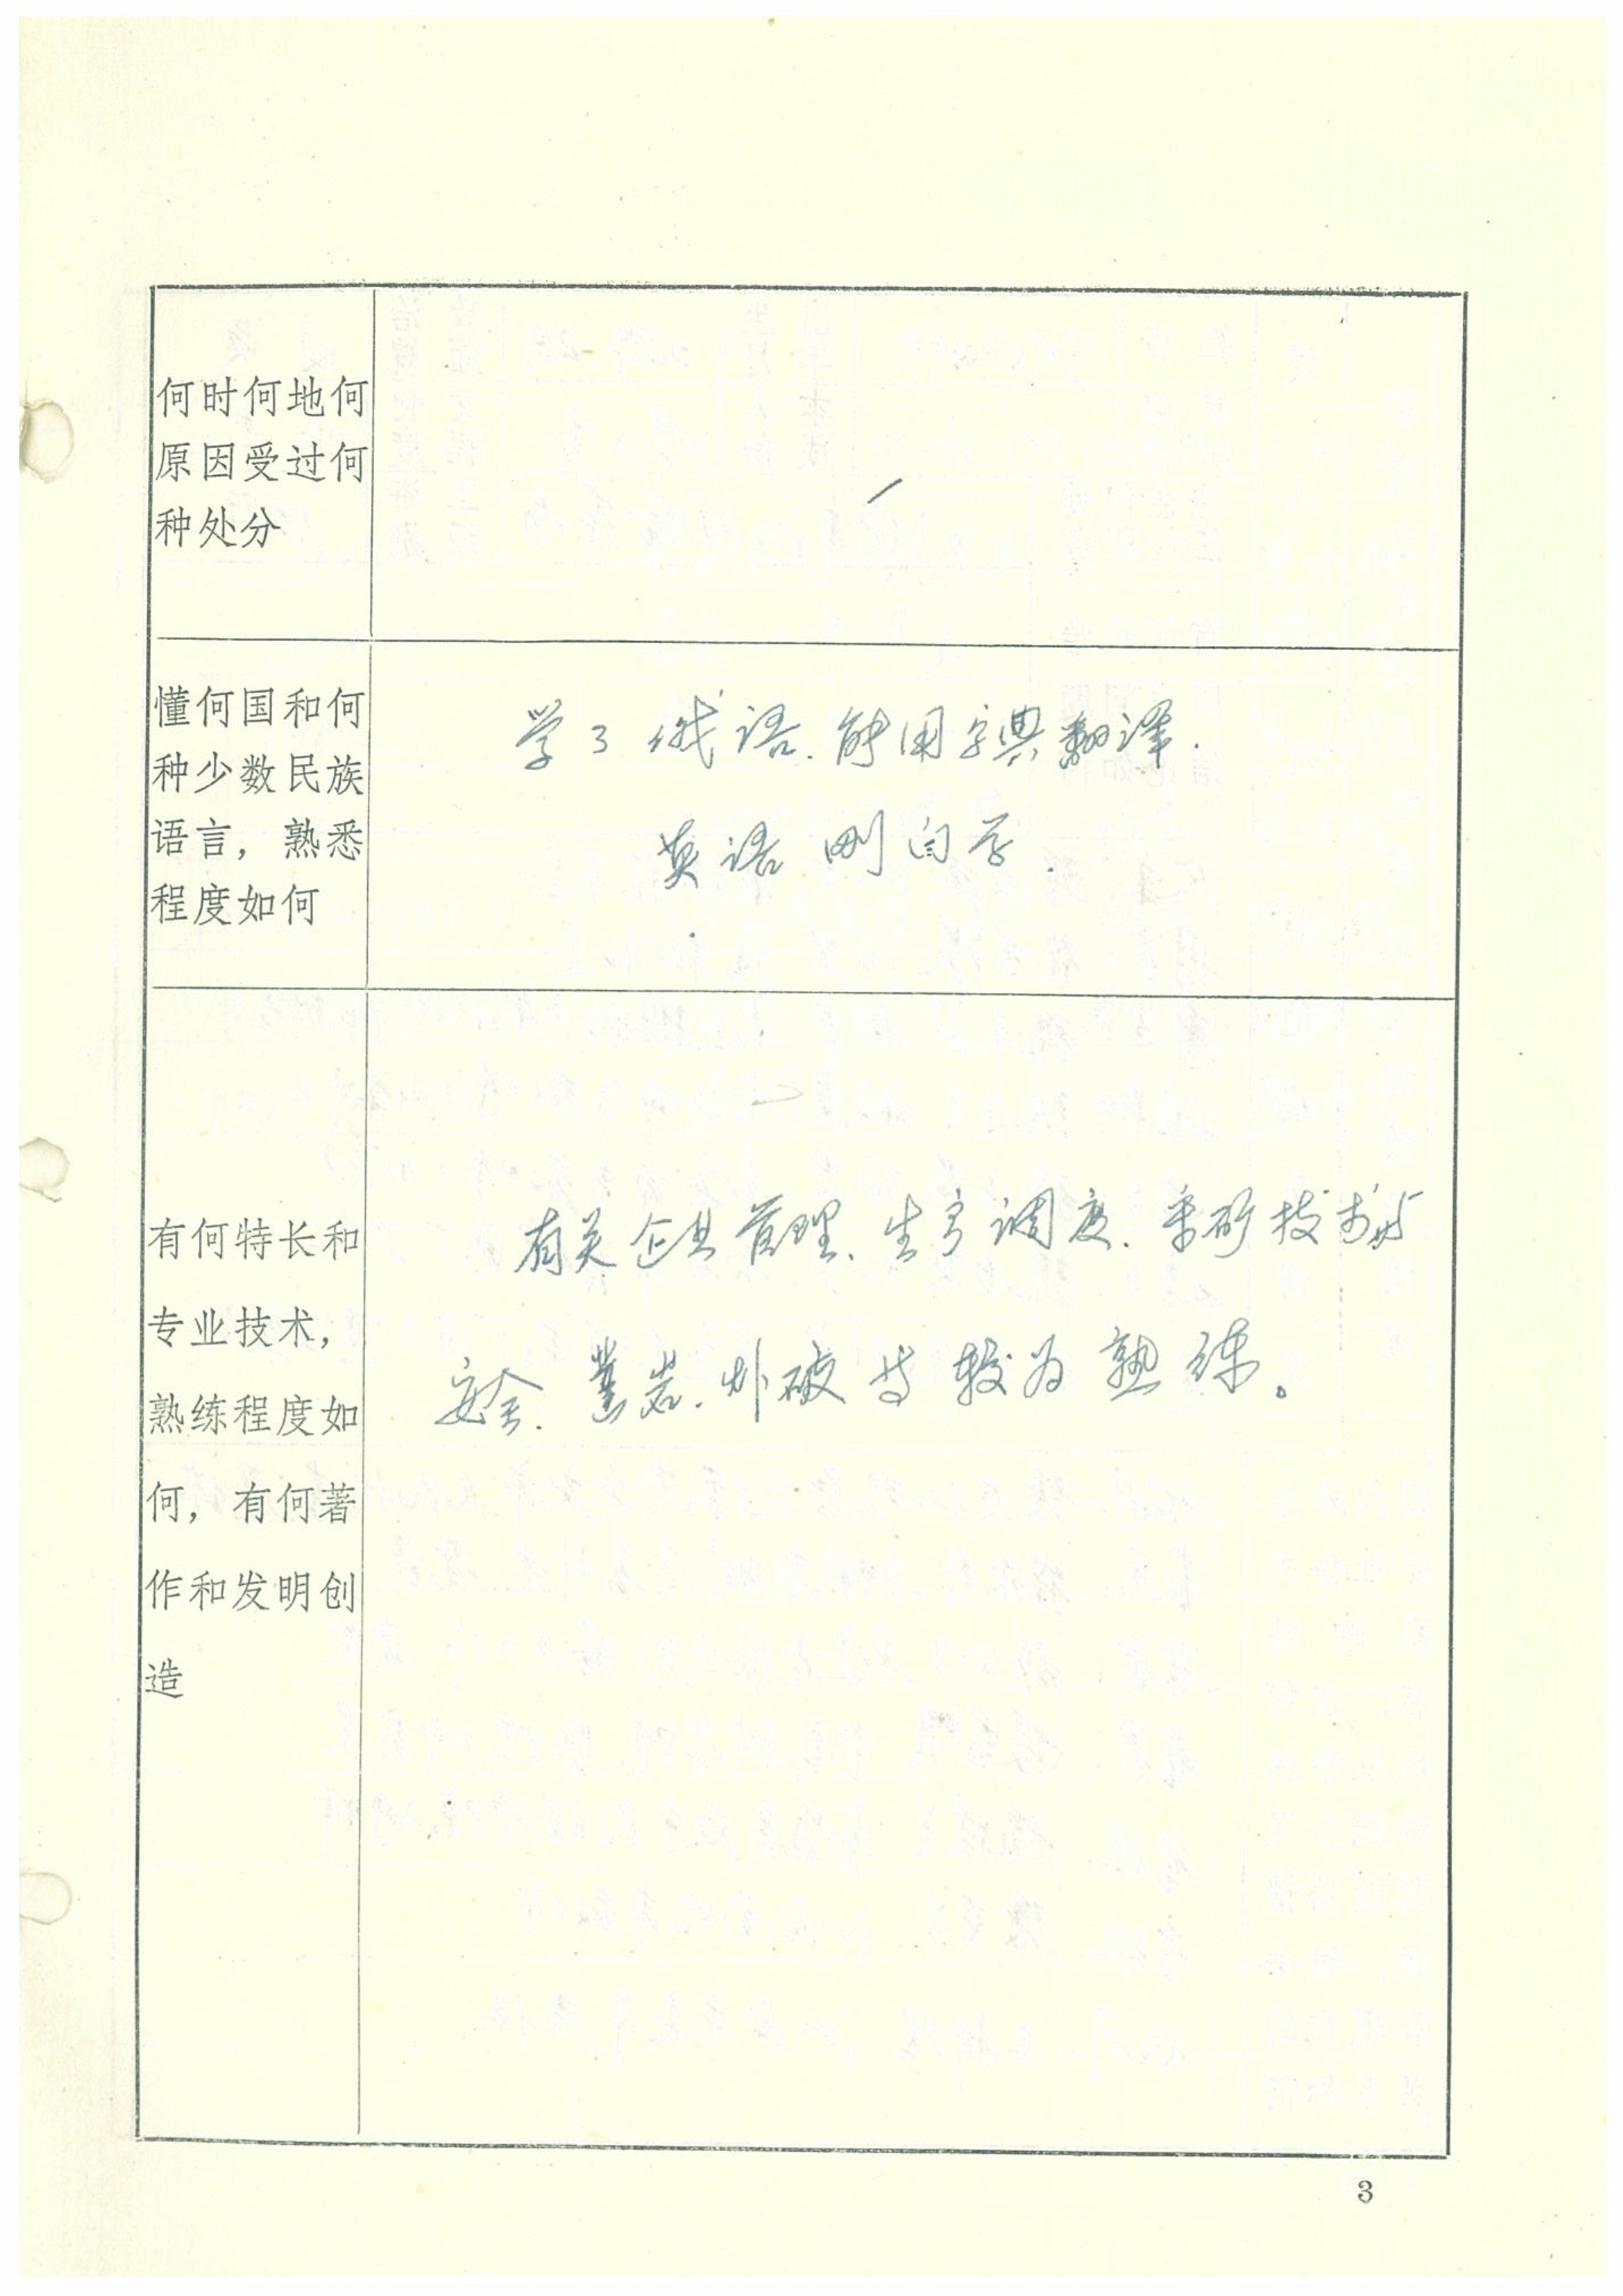 何时何地何
原因受过何
种处分
/
懂何国和何
种少数民族
语言，熟悉
程度如何
学了俄语.能用字典翻译.
英语刚自学.
有何特长和
专业技术，
熟练程度如
何，有何著
作和发明创
造
有关企业管理、生产调度、采矿技术与
安全.凿岩.炸破等较为熟练。
3